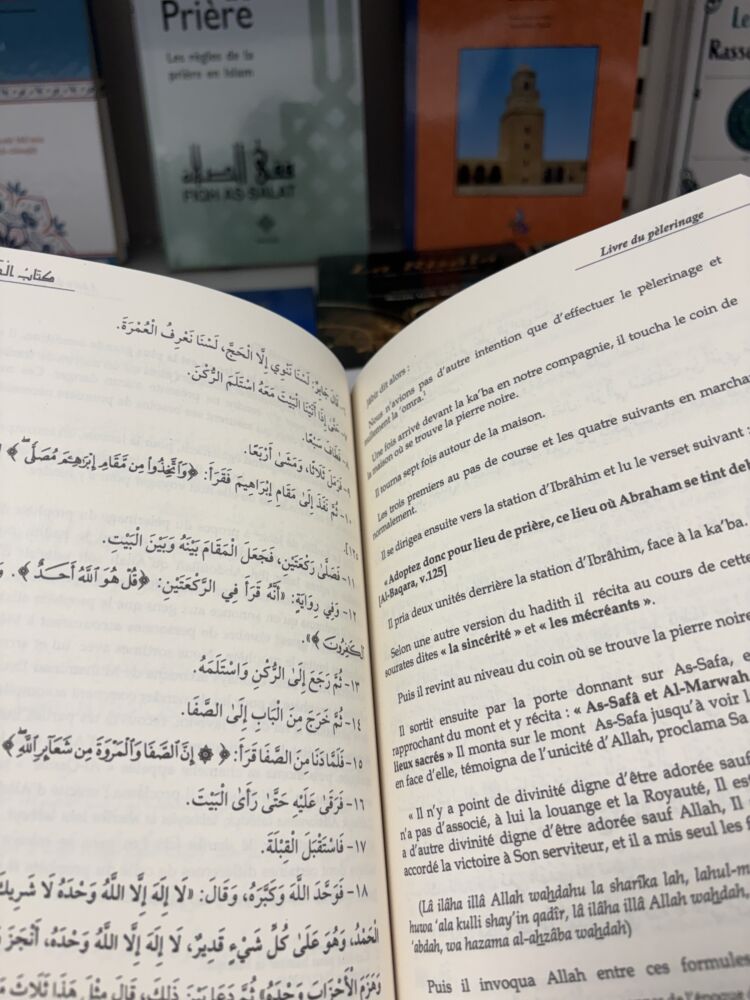 Prière
Les règles de la
prière en Islam
فقه الصلاة
FIQH AS-SALAT
Le
Rassa
La Risâla
كتاب
قَالَ جَابِرٌ: لَسْنَا نَنْوِي إِلَّا الْحَجَّ، لَسْنَا نَعْرِفُ الْعُمْرَةَ.
حَتَّى إِذَا أَتَيْنَا الْبَيْتَ مَعَهُ اسْتَلَمَ الرُّكْنَ.
٨- فَطَافَ سَبْعًا.
٩- فَرَمَلَ ثَلَاثًا، وَمَشَى أَرْبَعًا.
١٠- ثُمَّ نَفَذَ إِلَى مَقَامِ إِبْرَاهِيمَ فَقَرَأَ: ﴿وَاتَّخِذُوا مِن مَّقَامِ إِبْرَٰهِـۧمَ مُصَلًّى﴾
١٢٥].
١١- فَصَلَّى رَكْعَتَيْنِ، فَجَعَلَ الْمَقَامَ بَيْنَهُ وَبَيْنَ الْبَيْتِ.
١٢- وَفِي رِوَايَةٍ: «أَنَّهُ قَرَأَ فِي الرَّكْعَتَيْنِ: ﴿قُلْ هُوَ اللَّهُ أَحَدٌ﴾. و
الْكَٰفِرُونَ﴾».
١٣- ثُمَّ رَجَعَ إِلَى الرُّكْنِ وَاسْتَلَمَهُ.
١٤- ثُمَّ خَرَجَ مِنَ الْبَابِ إِلَى الصَّفَا.
١٥- فَلَمَّا دَنَا مِنَ الصَّفَا قَرَأَ: ﴿۞ إِنَّ الصَّفَا وَالْمَرْوَةَ مِن شَعَآئِرِ اللَّهِ﴾
١٦- فَرَقَى عَلَيْهِ حَتَّى رَأَى الْبَيْتَ.
١٧- فَاسْتَقْبَلَ الْقِبْلَةَ.
١٨- فَوَحَّدَ اللَّهَ وَكَبَّرَهُ، وَقَالَ: «لَا إِلَهَ إِلَّا اللَّهُ وَحْدَهُ لَا شَرِيكَ
الْحَمْدُ، وَهُوَ عَلَىٰ كُلِّ شَيْءٍ قَدِيرٌ، لَا إِلَهَ إِلَّا اللَّهُ وَحْدَهُ، أَنْجَزَ
وَهَزَمَ الْأَحْزَابَ وَحْدَهُ» ثُمَّ دَعَا بَيْنَ ذَلِكَ، قَالَ مِثْلَ هَذَا ثَلَاثَ
Livre du pèlerinage
Jâbir dit alors :
Nous n'avions pas d'autre intention que d'effectuer le pèlerinage et
nullement la 'omra.
Une fois arrivé devant la ka'ba en notre compagnie, il toucha le coin de
la maison où se trouve la pierre noire.
Il tourna sept fois autour de la maison.
Les trois premiers au pas de course et les quatre suivants en marchan
normalement.
Il se dirigea ensuite vers la station d'Ibrâhim et lu le verset suivant :
« Adoptez donc pour lieu de prière, ce lieu où Abraham se tint deb
[Al-Baqara, v.125]
Il pria deux unités derrière la station d'Ibrâhim, face à la ka'ba.
Selon une autre version du hadith il récita au cours de cette
sourates dites « la sincérité » et « les mécréants ».
Puis il revint au niveau du coin où se trouve la pierre noire
Il sortit ensuite par la porte donnant sur As-Safa, e
rapprochant du mont et y récita : « As-Safâ et Al-Marwah
lieux sacrés » Il monta sur le mont As-Safa jusqu'à voir l
en face d'elle, témoigna de l'unicité d'Allah, proclama Sa
« Il n'y a point de divinité digne d'être adorée sauf
n'a pas d'associé, à lui la louange et la Royauté, Il est
a d'autre divinité digne d'être adorée sauf Allah, Il
accordé la victoire à Son serviteur, et il a mis seul les f
(Lâ ilâha illâ Allah wahdahu la sharîka lah, lahul-m
huwa 'ala kulli shay'in qadîr, lâ ilâha illâ Allah wahdah,
'abdah, wa hazama al-ahzâba wahdah)
Puis il invoqua Allah entre ces formules